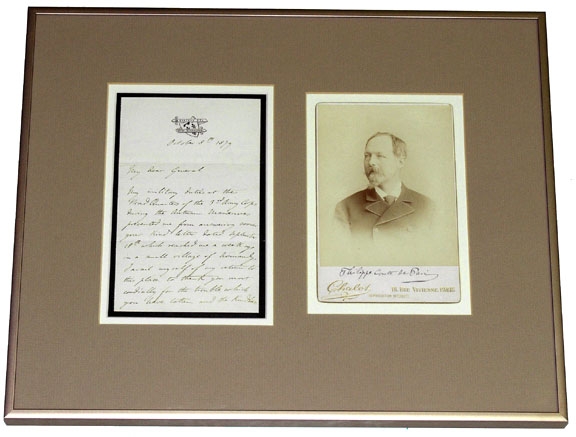 October 8th 1879
My dear General
My military duties at the
Head Quarters of the 3rd Army Corps
during the Autumn Manoeuvres
prevented me from answering sooner
your kind letter dated September
18th which reached me a week ago
in a small village of Normandy
I avail myself of my return to
this place to thank you most
cordially for the trouble which
you have taken, and the
Philippe Comte de Paris
Chalot
18, RUE VIVIENNE, PARIS